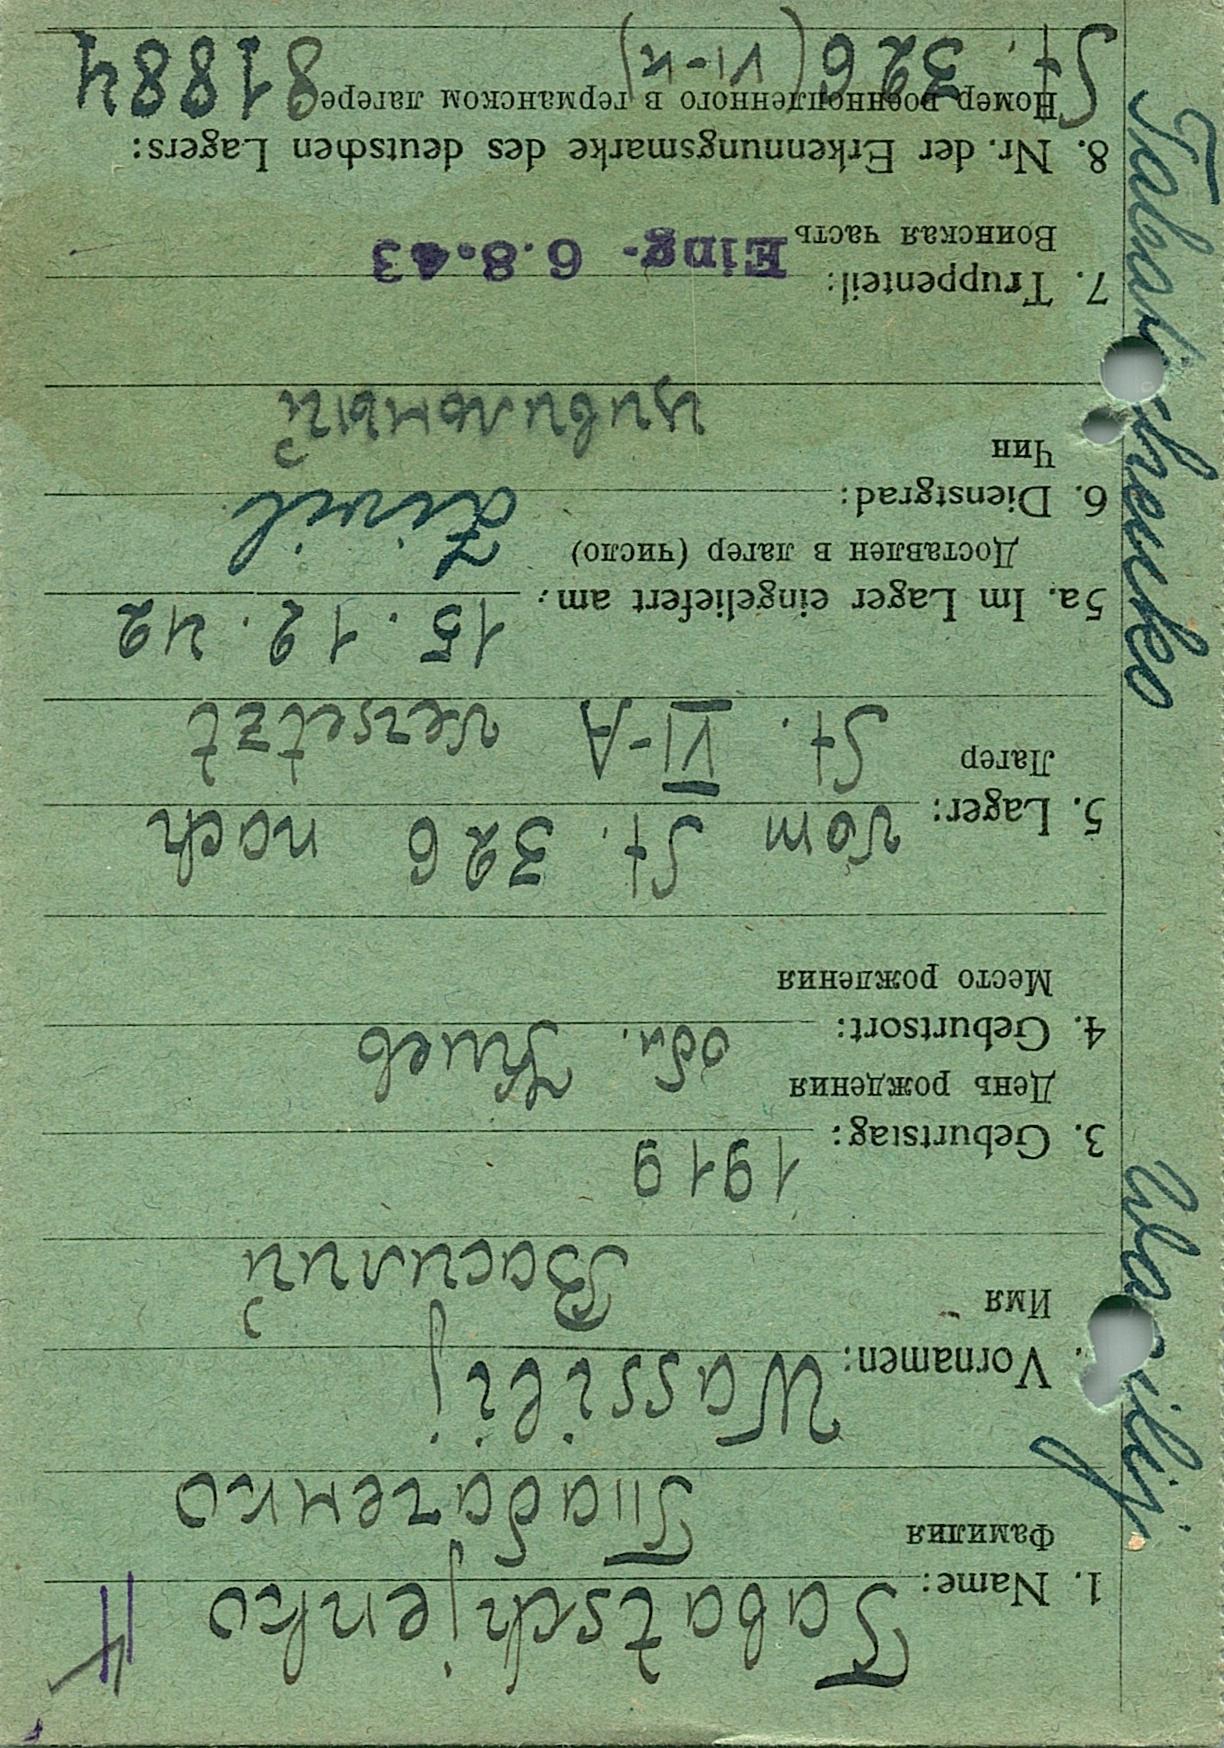 1. Name: Tabatschjenko
Фамилия Табаченко
Vornamen: Wassilij
Имя Василий
3. Geburtstag: 1919
День рождения
4. Geburtsort: обл. Киев
Место рождения
5. Lager: vom St. 326 nach
Лагер St. VI-A versetzt
5a. Im Lager eingeliefert am: 15. 12. 42
Доставлен в лагер (число)
6. Dienstgrad: Zivil
Чин цивильный
7. Truppenteil:
Воинская часть Eing. 6.8.43
8. Nr. der Erkennungsmarke des deutschen Lagers:
Номер военнопленного в германском лагере 81884
St. 326 (VI-K)